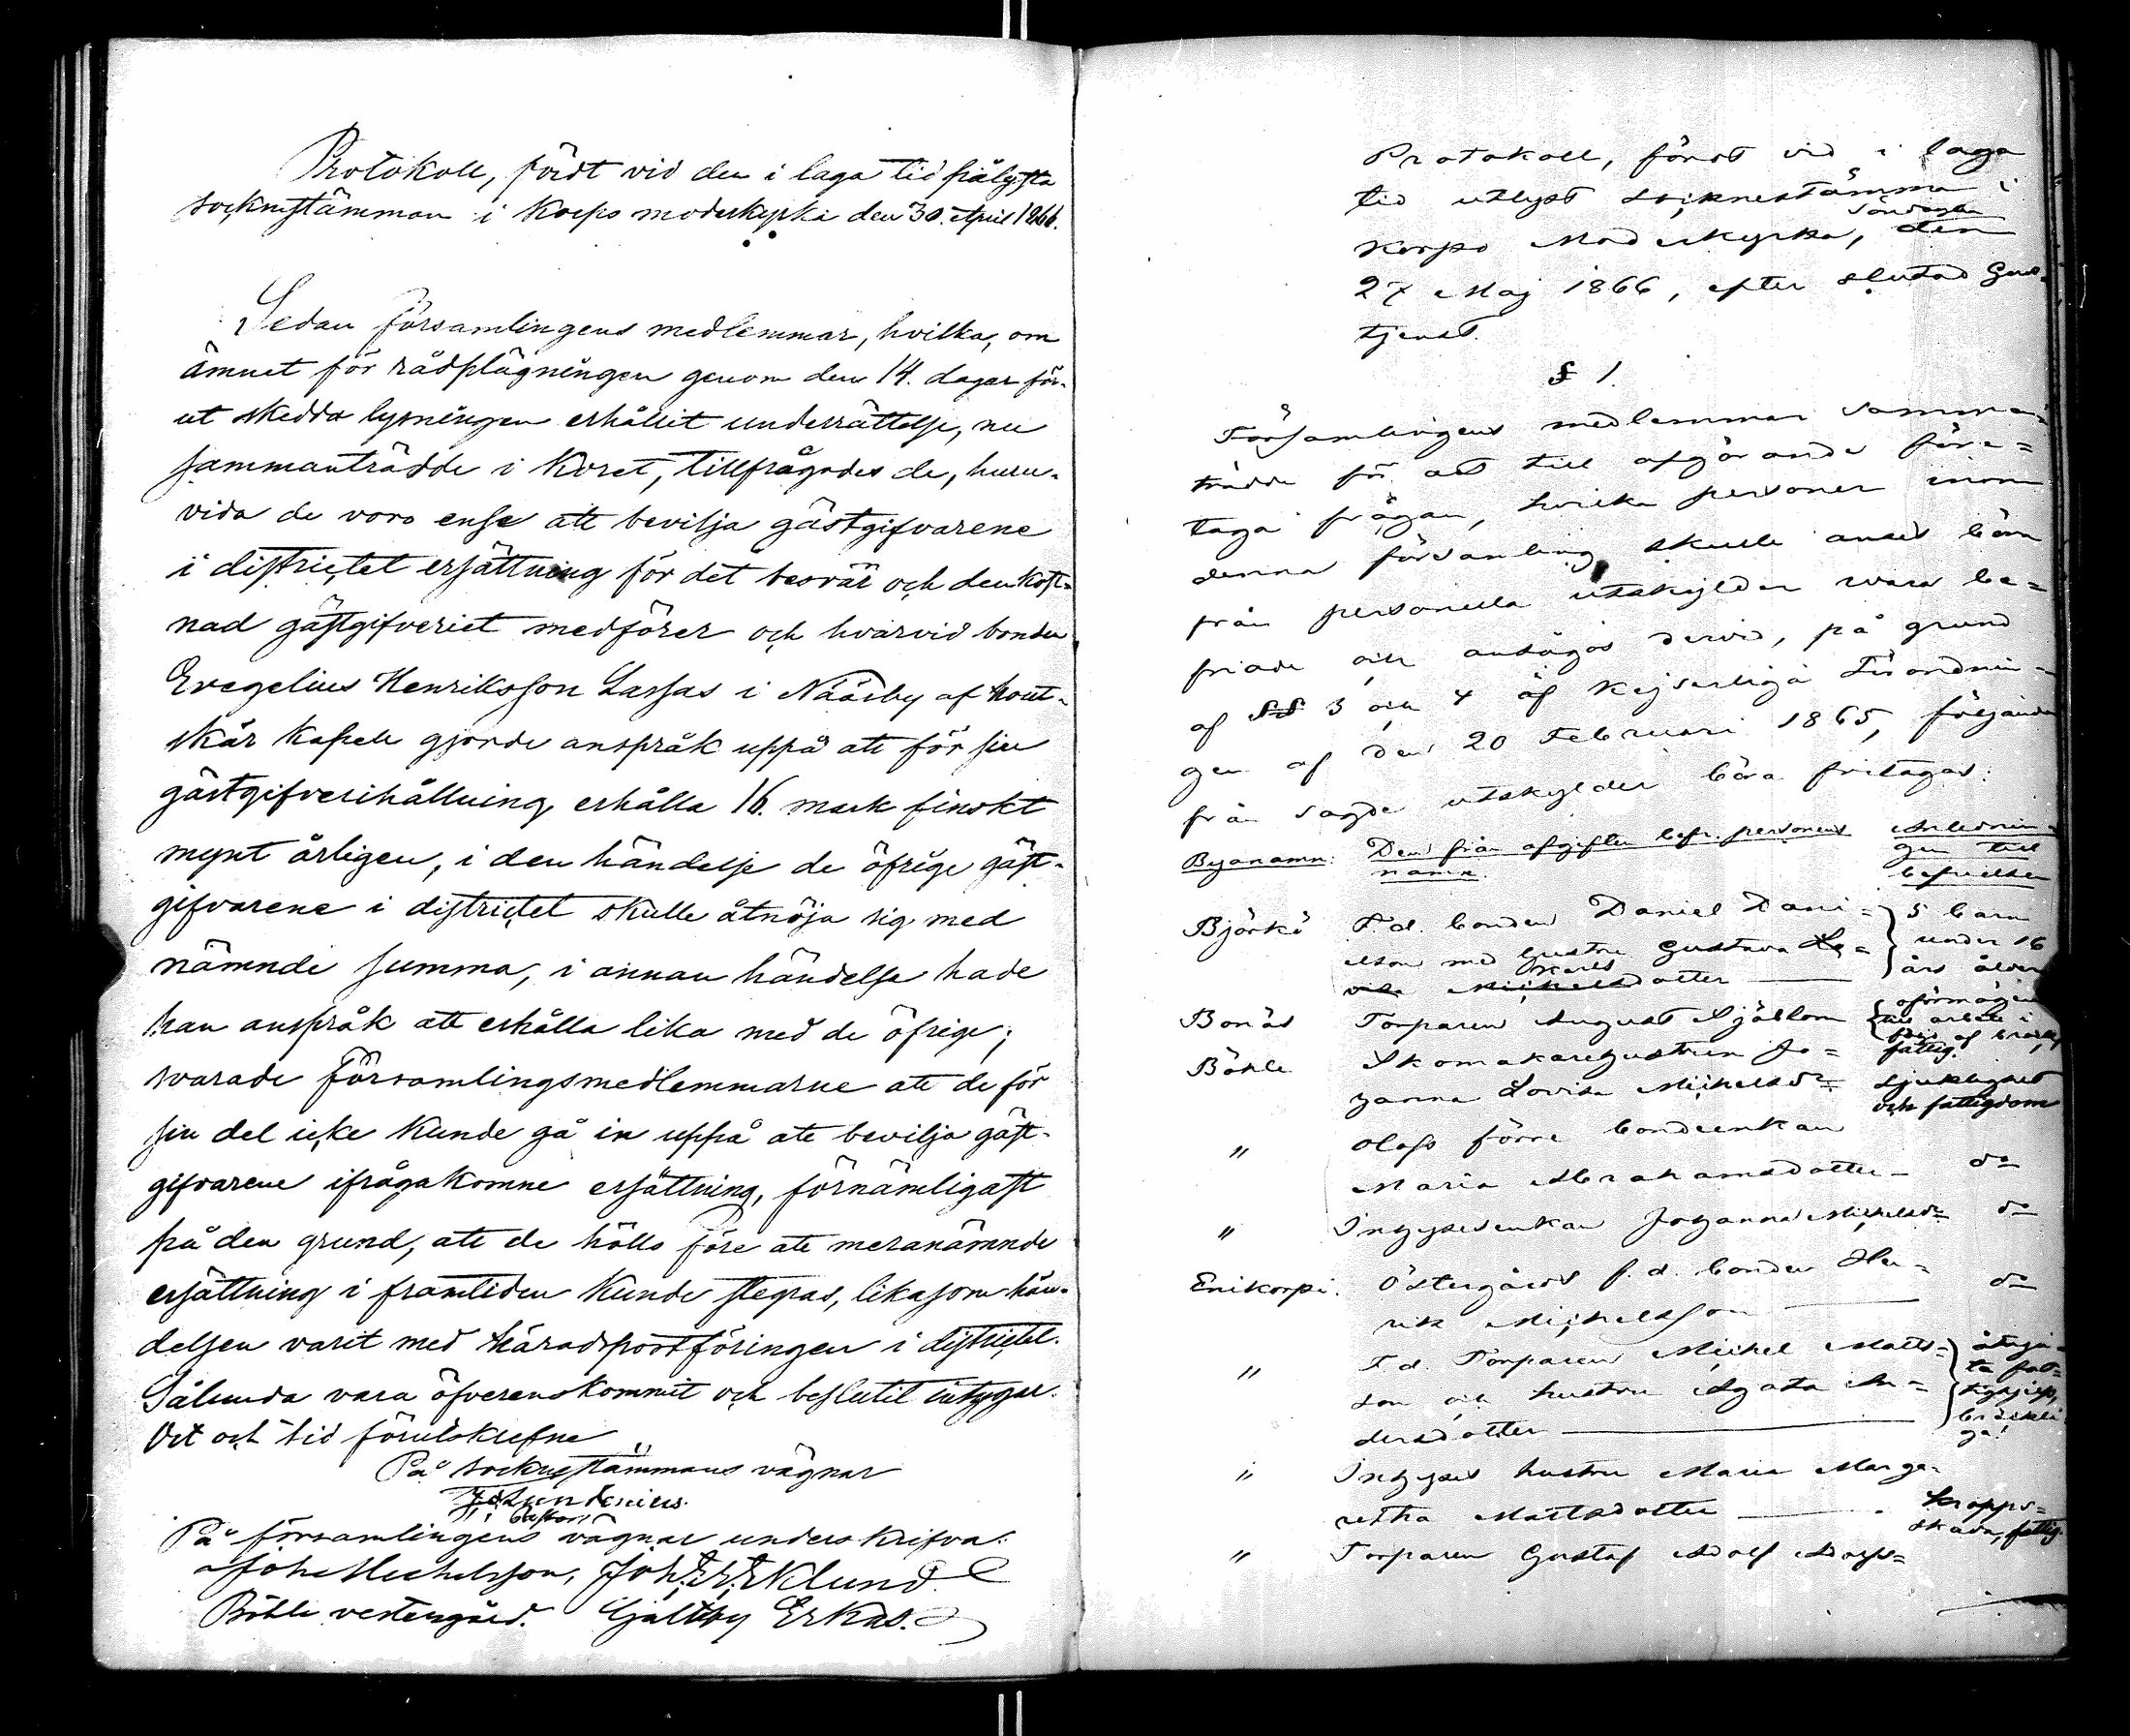 Protokoll, fördt vid den i laga tid pålysta
sockenstämman i Korpo moderkyrka den 30. April 1866.
Sedan församlingens medlemmar, hvilka, om
ämnet för rådplägningen genom den 14. dagar för-
ut skedda lysningen erhållit underrättelse, nu
sammanträdde i Koret, tillfrågades de, huru-
vida de voro ense att bevilja gästgifvarene
i districtet ersättning för det besvär och den kost-
nad gästgifveriet medförer och hvarvid bonden
Evegelius Henriksson Lassas i Näärby af Hout-
skär Kapell gjorde anspråk uppå att för sin
gästgifverihållning erhålla 16. mark finskt
mynt årligen, i den händelse de öfrige gäst-
gifvarene i districtet skulle åtnöja sig med
nämnde summa, i annan händelse hade
han anspråk att erhålla lika med de öfrige;
svarade församlingsmedlemmarne att de för
sin del icke kunde gå in uppå att bevilja gäst-
gifvarene ifrågakomne ersättning, förnämligast
på den grund, att de hölls före att meranämnde
ersättning i framtiden kunde stegras, likasom hän-
delsen varit med häradspostföringen i districtet.
Sålunda vara öfverenskommit och beslutit intygar.
Ort och tid förutskrefne
På sockenstämmans vägnar
Lundenius.
På församlingens vägnar underskrifva:
Joh: Michelsson, Joh: E: Eklund
Böhle vestergård. Gyltby Erkas.
Protokoll, fördt vid i laga
tid utlyst socknestämma i
Korpo Moderkyrka, Söndagen den
27 Maj 1866, efter slutad Gud-
tjenst.
§ 1.
Församlingens medlemmar samman-
trädde för att till afgörande före-
taga frågan, hvilka personer inom
denna församling skulle anses böra
från personella utskylder vara be-
friade och ansågos dervid, på grund
af §§ 3 och 4 af Kejserliga Förordnin-
gen af den 20 Februari 1865, följande
från sagde utskylder böra fritagas:
Byanamn: Den från afgiften befr. personens namn. Anledningen till befrielsen
Björkö F.d. bonden Daniel Dani- 5 barn
elson med hustru Gustava Lo- under 16
visa Michels Karlsdotter års ålder
Bonäs Torparen August Sjöblom oförmögen till arbete i
Böhle Skomakarehustrun Jo- fattig.
hanna Lovisa Michelsdr sjuklighet och fattigdom
" Olofs förre bondeenkan
Maria Abrahamsdotter - do
" Inhysesenkan Johanna Michelsdr do
Enikorpi. Östergårds f.d. bonden Hen-
rik Michelsson do
" F.d. Torparen Michel Matts- åtnju-
son och hustru Agata An- ta fat-
dersdotter tighjelp, bräckliga!
" Inhyses hustru Maria Marga-
retha Mattsdotter kropps-
skada, fattig.
" Torparen Gustaf Adolf Adolfs-